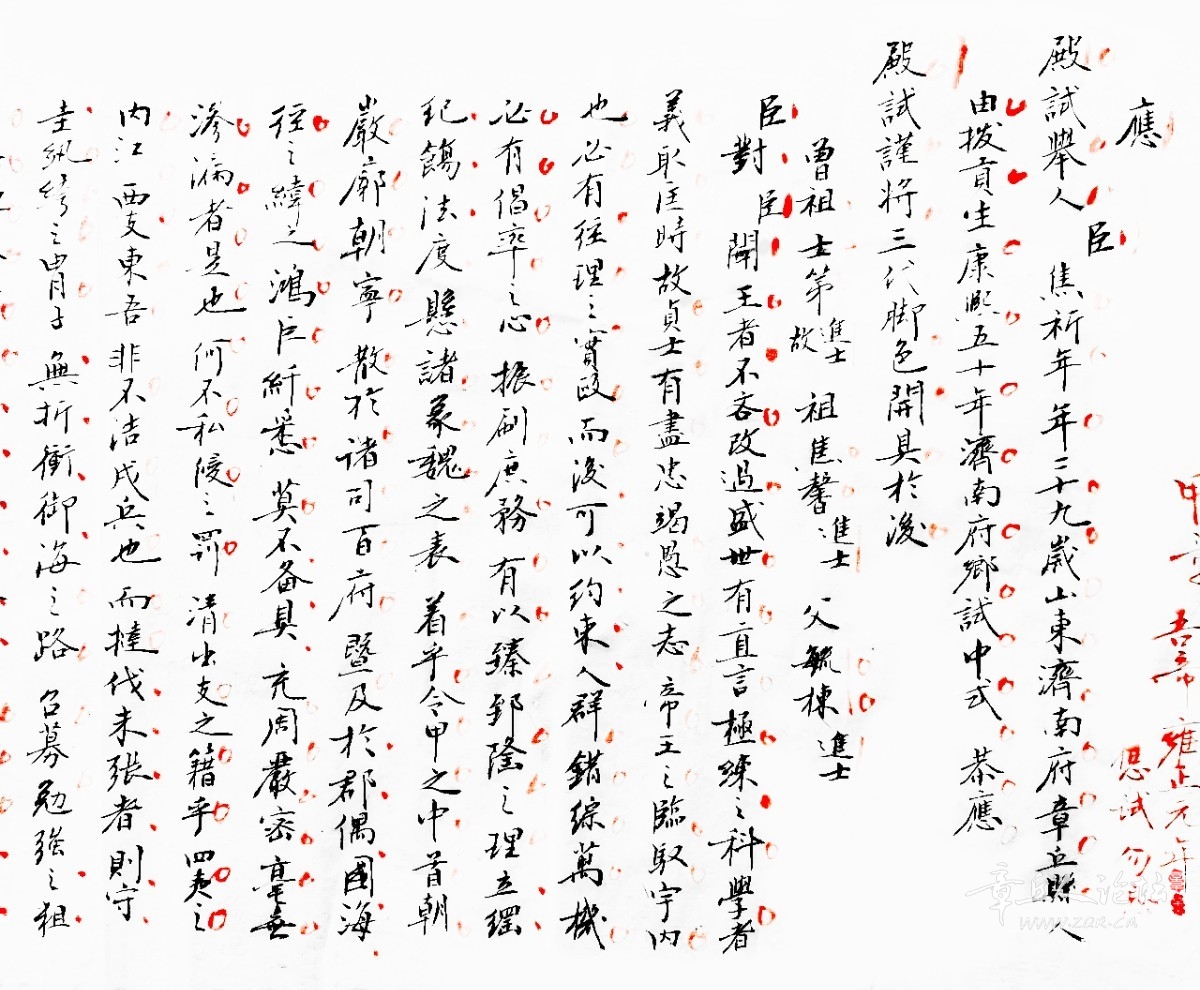 應
殿試舉人 臣 焦祈年年二十九歲山東濟南府章丘縣人
由拔貢生康熙五十年濟南府鄉試中式 恭應
殿試謹將三代脚色開具於後
曾祖士第故進士 祖焦馨進士 父毓棟進士
臣對 臣聞王者不吝改過盛世有直言極練之科學者
義取匡時故貞士有盡忠竭愚之志 帝王之臨馭宇內
也必有徃理之實政而後可以約束人群錯綜萬機
必有倡率之心振刷庶務有以臻郅隆之理立綱
紀飭法度懸諸象魏之表着乎令甲之中首朝
嚴廓朝寧散於諸司百府暨及於郡偶國海
徃之緯之鴻巨纤悉莫不备具充周嚴密毫無
滲漏者是也何不私陵之罰清出支之籍乎四夷之
內江西支東吾非不洁戎兵也而撻伐未張者則守
圭紈绔之胄子無折衝御海之路召募勉强之粗
甲辰 吾帝雍正元年
恩試
章丘论坛
www.zqs.cn